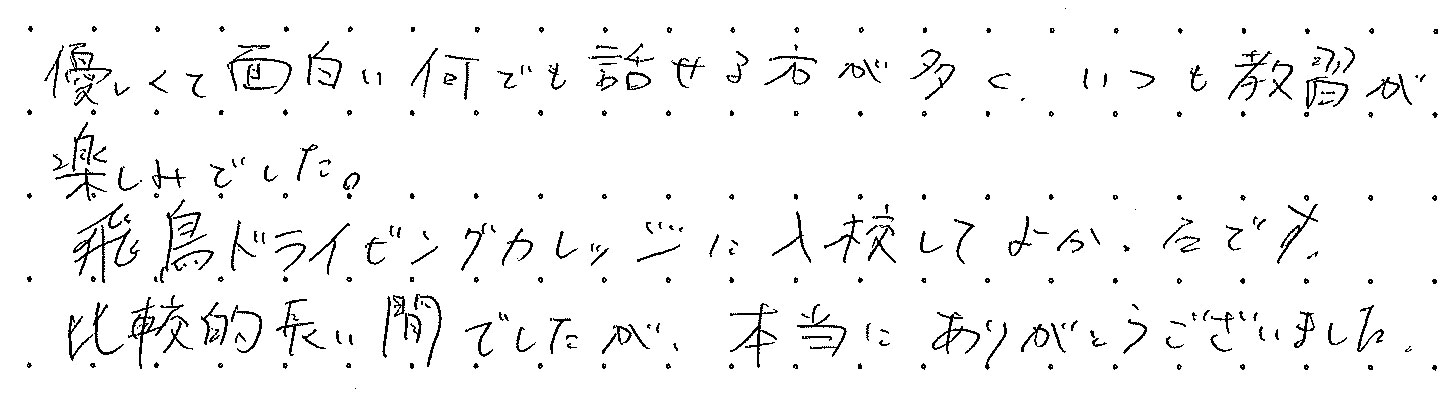 優しくて面白い何でも話せる方が多く、いつも教習が
楽しみでした。
飛鳥ドライビングカレッジに入校してよかったです。
比較的長い間でしたが、本当にありがとうございました。